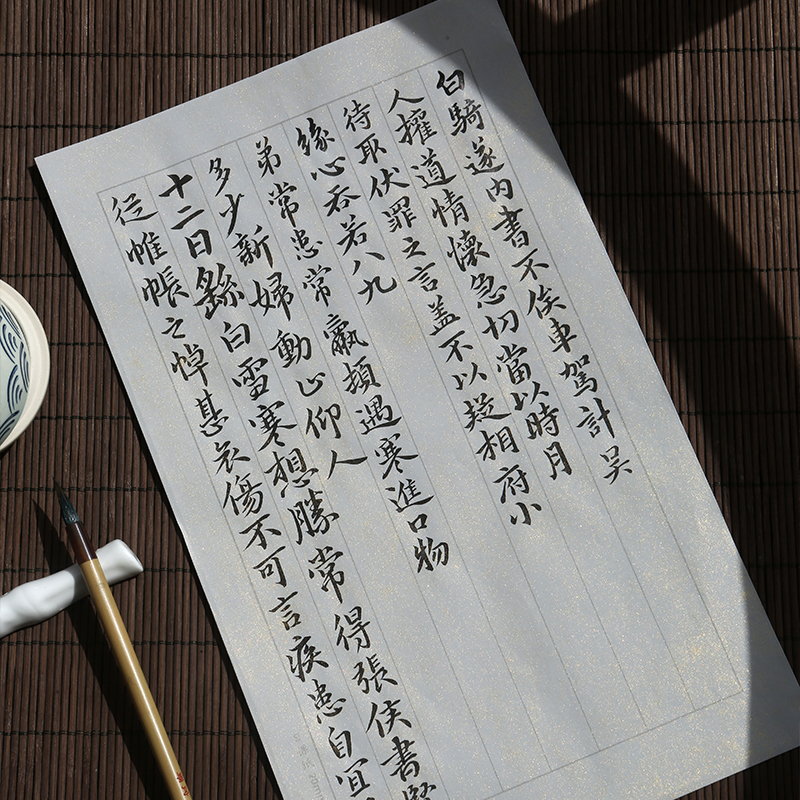 白騎遂內書不俟車駕計吳
人權道情懷急切當以時月
待取伏罪之言盖不以超相府小
緣心吞若八九
弟常患常羸頓遇寒進口物
多少新婦動止仰人
十二日繇白雪寒想勝常得張侯書
從帷帳之悼甚哀傷不可言疾患自宜